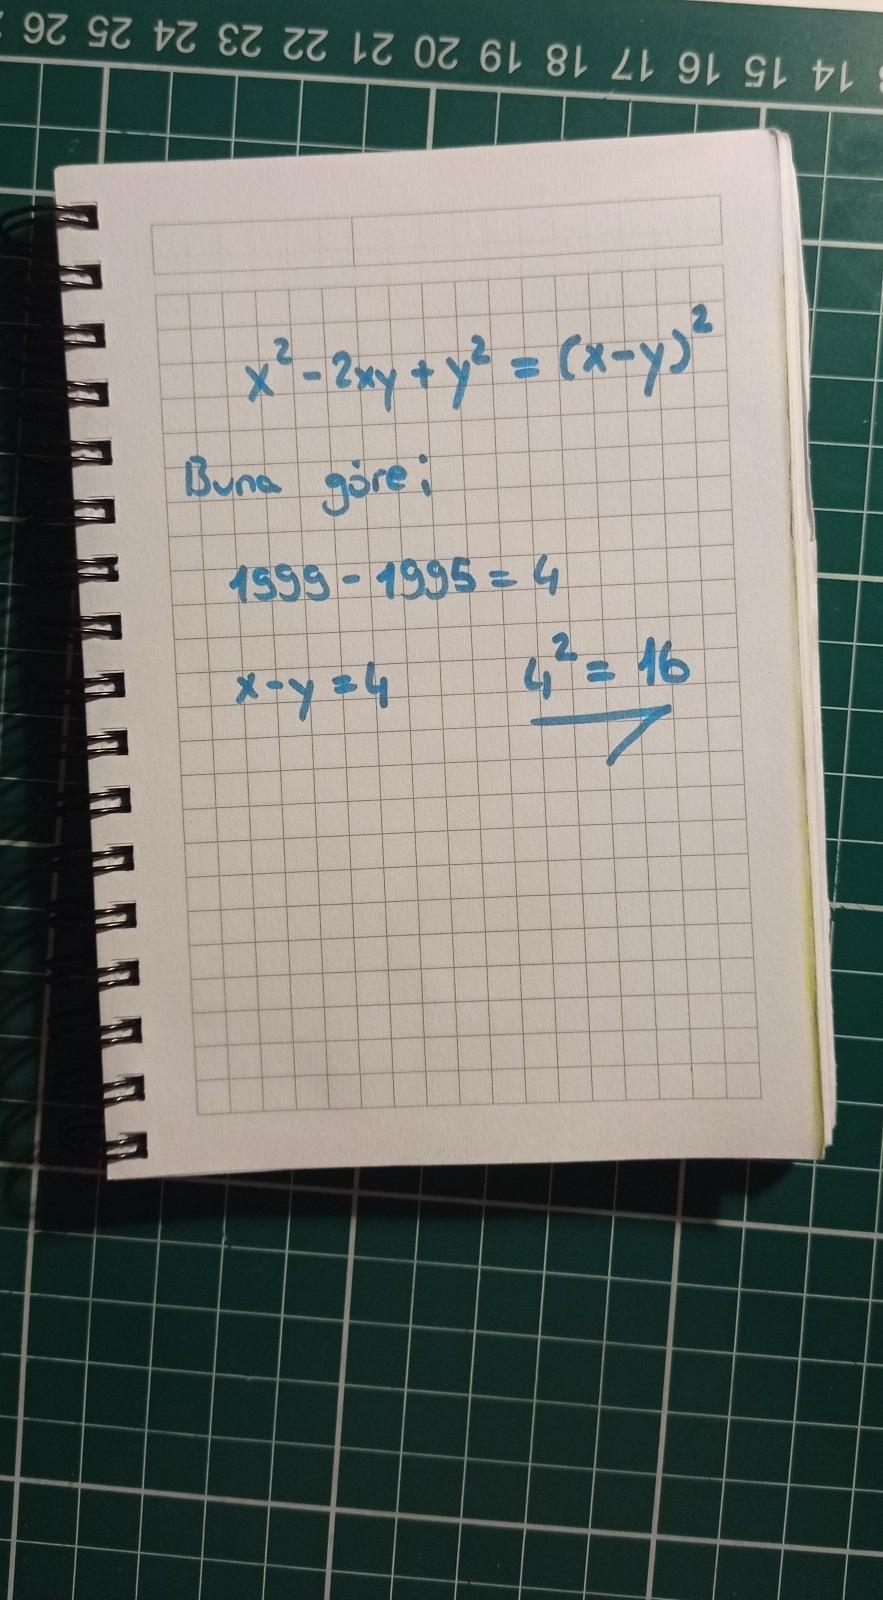 26 25 24 23 22 21 20 19 18 17 16 15 14
x² - 2xy + y² = (x-y)²
Buna göre;
1999 - 1995 = 4
x-y = 4 4² = 16